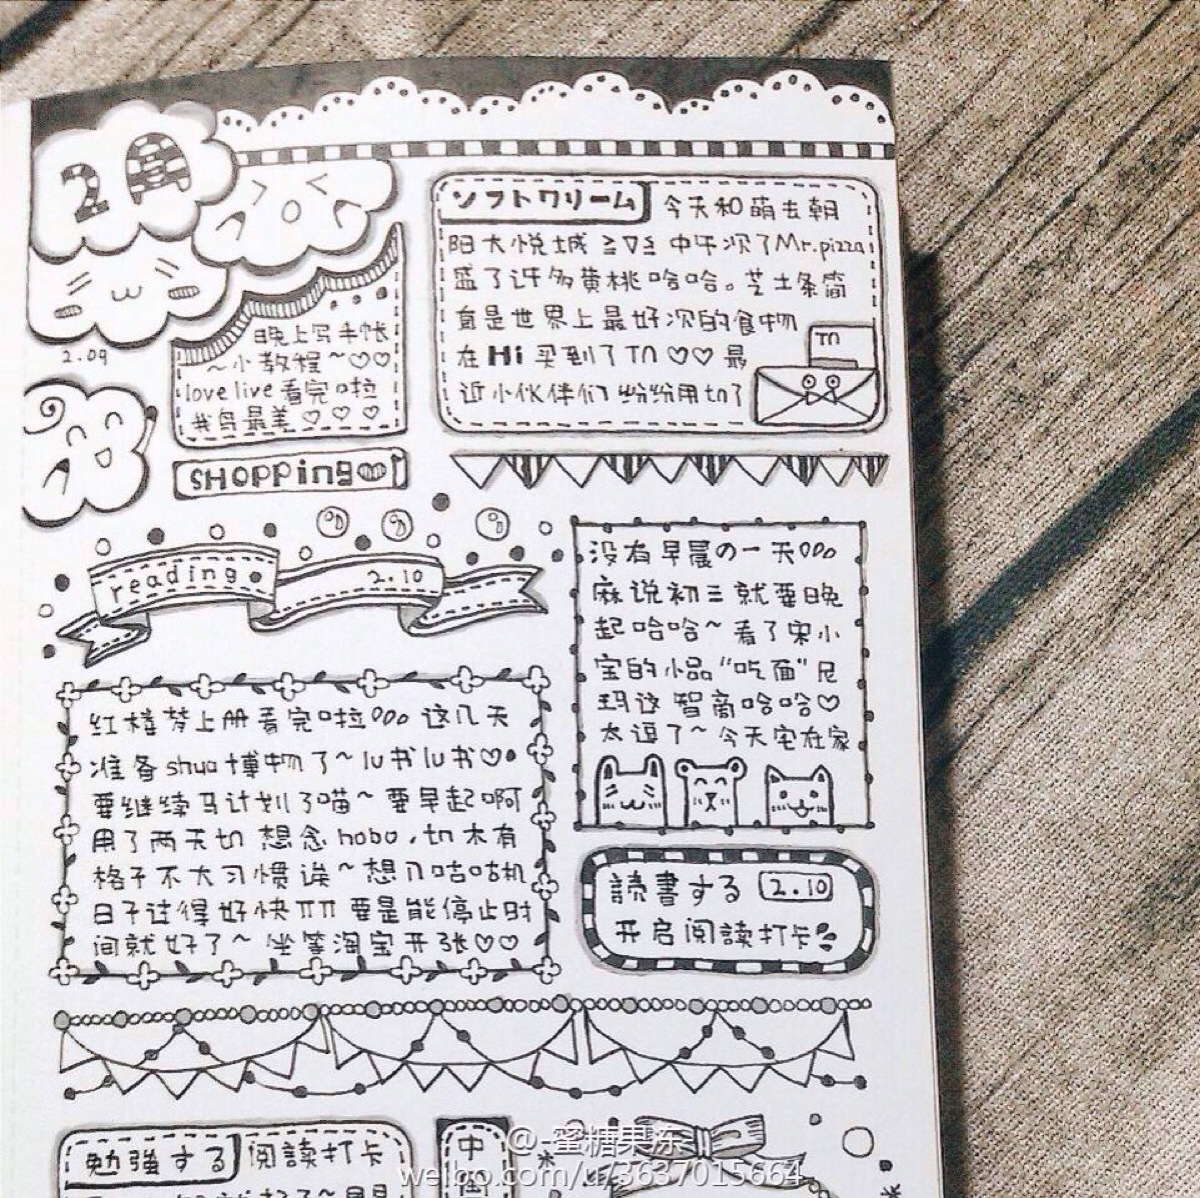 2月
2.09
晚上写手帐
~小教程~♡♡
love live看完啦
我鸟最美♡♡♡
SHOPPing
ソフトワリーム 今天和萌去朝
阳大悦城≧▽≦ 中午次了Mr.pizza
盛了许多黄桃哈哈。芝士条简
直是世界上最好次的食物
在Hi买到了TN♡♡最
近小伙伴们纷纷用tn了
TN
reading 2.10
没有早晨の一天
麻说初三就要晚
起哈哈~看了宋小
宝的小品“吃面”尼
玛这智商哈哈♡
太逗了~今天宅在家
红楼梦上册看完啦 这几天
准备shua博物了~lu书lu书♡
要继续马计划了喵~要早起啊
用了两天tn 想念hobo,tn木有
格子不大习惯诶~想入咕咕机
日子过得好快ㄇㄇ 要是能停止时
间就好了~坐等淘宝开张♡♡
読書する 2.10
开启阅读打卡
勉強する 阅读打卡
中国
@-蜜糖果冻
weibo.com/u/3637015664